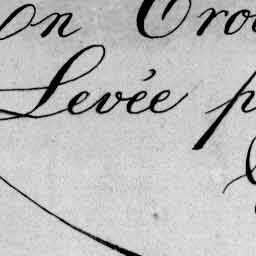 on Cro
Levée p